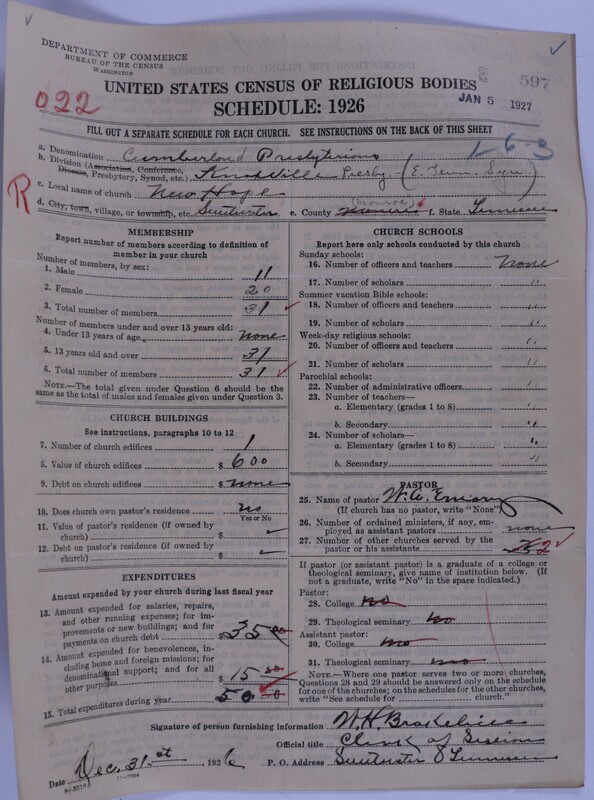 DEPARTMENT OF COMMERCE
BUREAU OF THE CENSUS
WASHINGTON
UNITED STATES CENSUS OF RELIGIOUS BODIES
SCHEDULE: 1926
597
JAN 5 1927
022
1-6-3
FILL OUT A SEPARATE SCHEDULE FOR EACH CHURCH. SEE INSTRUCTIONS ON THE BACK OF THIS SHEET
a. Denomination Cumberland Presbyterian
b. Division (Association, Conference, Diocese, Presbytery, Synod, etc.) Knoxville Presby. (E. Tenn. Syn.)
c. Local name of church New Hope
R
d. City, town, village, or township, etc. Sweetwater e. County (Monroe) f. State Tennessee
MEMBERSHIP
Report number of members according to definition of member in your church
Number of members, by sex:
1. Male 11
2. Female 20
3. Total number of members 31
Number of members under and over 13 years old:
4. Under 13 years of age none
5. 13 years old and over 31
6. Total number of members 31
NOTE.—The total given under Question 6 should be the same as the total of males and females given under Question 3.
CHURCH BUILDINGS
See instructions, paragraphs 10 to 12
7. Number of church edifices 1
8. Value of church edifices $ 600
9. Debt on church edifices $ none
10. Does church own pastor's residence? no
Yes or No
11. Value of pastor's residence (if owned by church) $
12. Debt on pastor's residence (if owned by church) $
EXPENDITURES
Amount expended by your church during last fiscal year
13. Amount expended for salaries, repairs, and other running expenses; for improvements or new buildings; and for payments on church debt $ 35 00
14. Amount expended for benevolences, including home and foreign missions; for denominational support; and for all other purposes $ 15 00
15. Total expenditures during year $ 50 00
CHURCH SCHOOLS
Report here only schools conducted by this church
Sunday schools:
16. Number of officers and teachers none
17. Number of scholars "
Summer vacation Bible schools:
18. Number of officers and teachers "
19. Number of scholars "
Week-day religious schools:
20. Number of officers and teachers "
21. Number of scholars "
Parochial schools:
22. Number of administrative officers "
23. Number of teachers—
a. Elementary (grades 1 to 8) "
b. Secondary "
24. Number of scholars—
a. Elementary (grades 1 to 8) "
b. Secondary "
PASTOR
25. Name of pastor W. A.
(If church has no pastor, write "None")
26. Number of ordained ministers, if any, employed as assistant pastors none
27. Number of other churches served by the pastor or his assistants 2
If pastor (or assistant pastor) is a graduate of a college or theological seminary, give name of institution below. (If not a graduate, write "No" in the space indicated.)
Pastor:
28. College no
29. Theological seminary no
Assistant pastor:
30. College no
31. Theological seminary no
NOTE.—Where one pastor serves two or more churches, Questions 28 and 29 should be answered only on the schedule for one of the churches; on the schedules for the other churches, write "See schedule for ........ church."
Signature of person furnishing information W. H.
Official title Clerk of Session
Date Dec. 31st, 1926 P. O. Address Sweetwater Tennessee